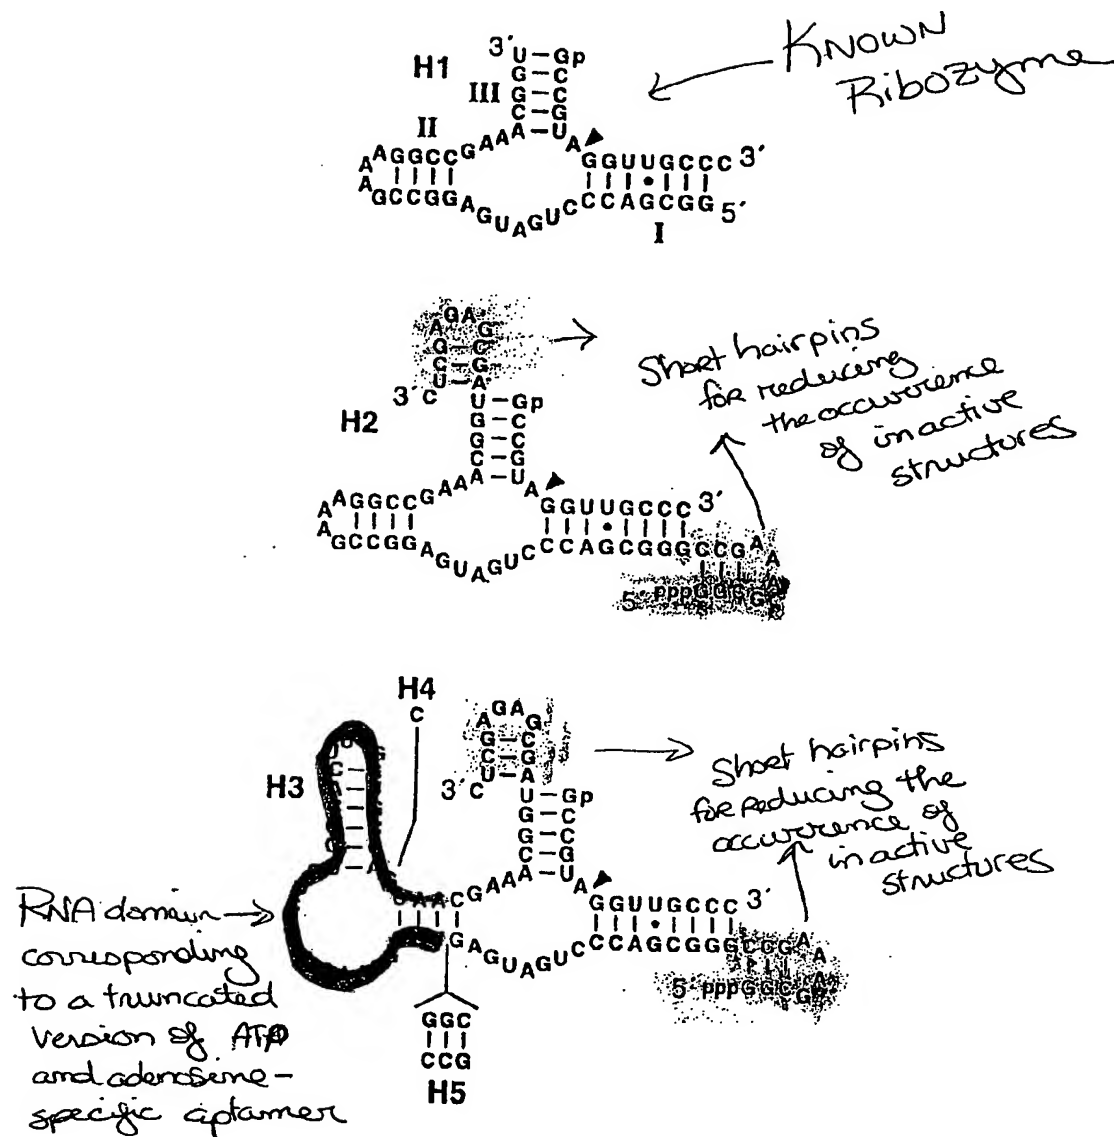 KNOWN
Ribozyme
H1
3´
U–Gp
G–C
G–C
III
C–G
A–U
II
AAGGCCGAAA
A
AGGUUGCCC 3´
AGCCGGAGUAGUCCCAGCGG 5´
I
AGAG
AGCUC
CGA
3´
H2
U–Gp
G–C
G–C
C–G
A–U
AAGGCCGAAA
A
AGGUUGCCC 3´
AGCCGGAGUAGUCCCAGCGGGCCGAA
5´ pppGG
Short hairpins
for reducing
the occurrence
of inactive
structures
H4
C
H3
AGAG
AGCUC
CGA
3´
U–Gp
G–C
G–C
C–G
A–U
AACGAAA
AGGUUGCCC 3´
GAGUAGUCCCAGCGGGCCGAA
5´ pppGG
Short hairpins
for reducing the
occurrence of
inactive
structures
RNA domain
corresponding
to a truncated
version of ATP
and adenosine-
specific aptamer
GGC
CCG
H5